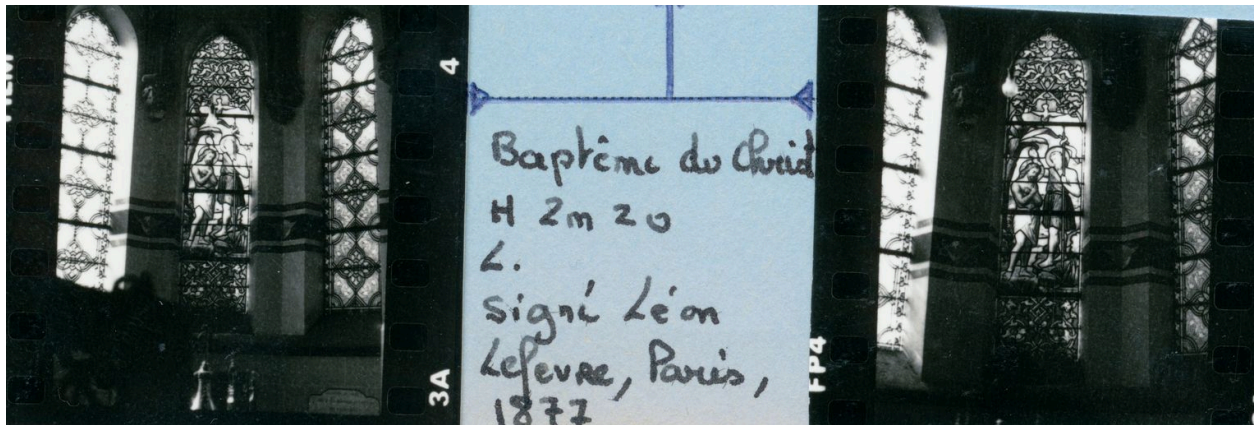 4
3A
Baptême du Christ
H 2m 20
L.
signé Léon
Lefevre, Paris,
1877
FP4